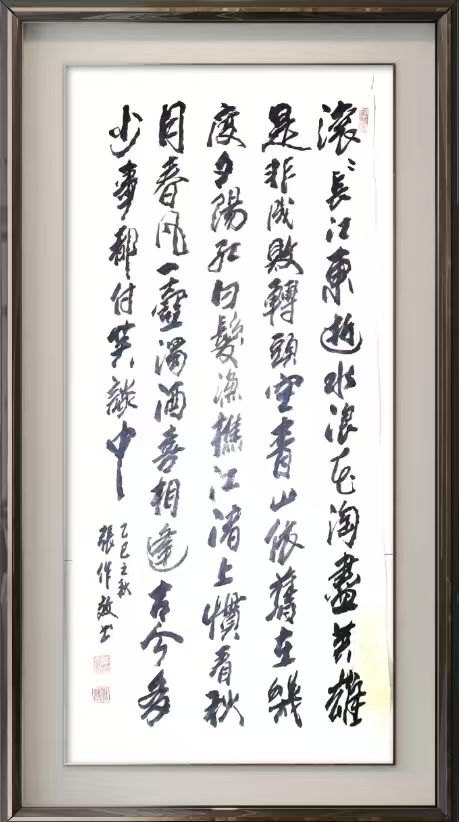 滚〻長江東逝水浪花淘盡英雄
是非成敗轉頭空青山依舊在幾
度夕陽紅白髮漁樵江渚上慣看秋
月春风一壺濁酒喜相逢古今多
少事都付笑談中
乙巳立秋
張作 书